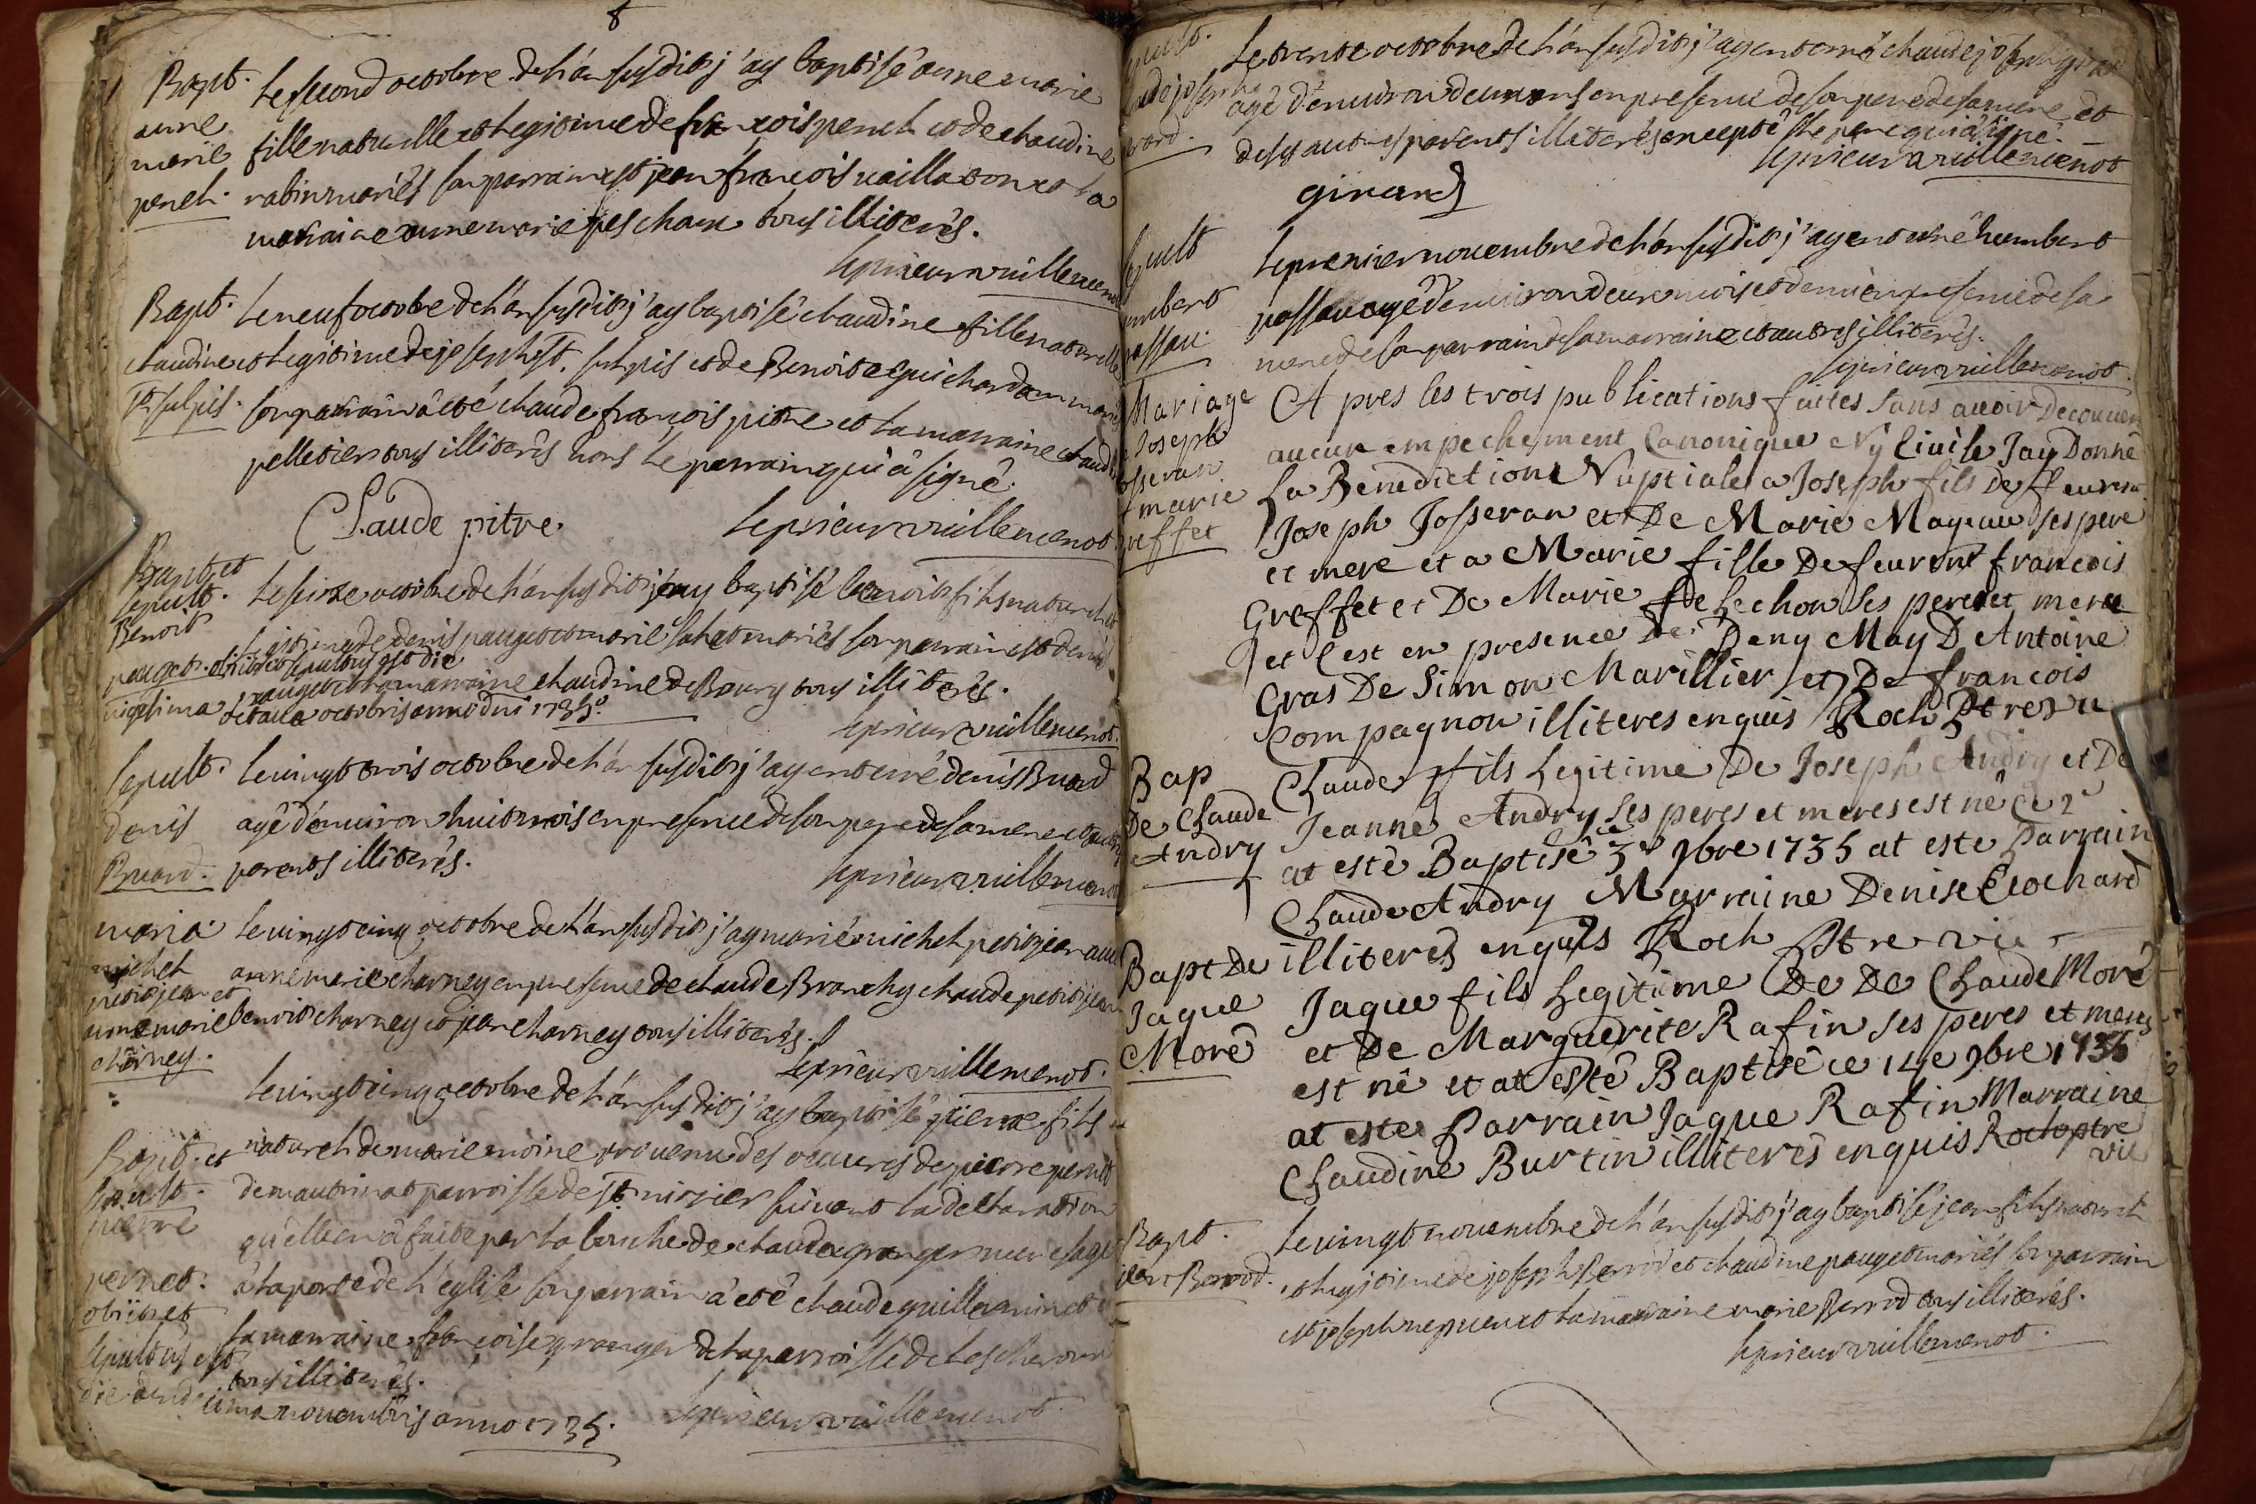 Bapt.
anne
marie
penel.
Le second octobre de l'an susdit j'ay baptisé anne marie
fille naturelle et legitime de françois penel et de claudine
rabin mariés son parrain est jean françois vaillaton et la
marraine anne marie pes chaux tous illiterés.
le prieur vuillemenot
Bapt.
claudine
St. sulpis.
Le neuf octobre de l'an susdit j'ay baptisé claudine fille naturelle
et legitime de joseph St. sulpis et de Benoite guichardan mariés
son parrain à eté claude françois pitre et la marraine claudine
pelletier tous illiterés hors le parrain qui à signé.
Claude pitre
le prieur vuillemenot
Bapt. et
sepult.
Benoit
pauget.
Le seize octobre de l'an susdit j'ay baptisé benoit fils naturel et
legitime de denis pauget et marie mariés son parrain est denis
obiit et sepultus est die
pauget et la marraine claudine de Bourg tous illiterés.
vigesima octava octobris anno dni 1735.
le prieur vuillemenot.
Sepult.
denis
Buard.
Le vingt trois octobre de l'an susdit j'ay enterré denis Buard
agé d'environ huit mois en presence de son pere de sa mere et autres
parents illiterés.
le prieur vuillemenot
maria
michel
petitjean et
anne marie
charney.
Le vingt cinq octobre de l'an susdit j'ay marié michel petitjean avec
anne marie charney en presence de claude Branchy claude petitjean
benoit charney et jean charney tous illiterés.
le prieur vuillemenot.
Bapt. et
sepult.
pierre
pernet.
obiit et
sepultus est
Le vingt cinq octobre de l'an susdit j'ay baptisé pierre fils
naturel de marie moine provenu des oeuvres de pierre pernet
de mautrinat parroisse de St. nizier suivant la declaration
qu'elle en à faite par la bouche de claudea granger mere sage
à la porte de l'eglise son parrain à eté claude guillemin et
sa marraine françoise granger de la parroisse de lescheroux
tous illiterés.
die undecima novembris anno 1735.
le prieur vuillemenot.
Sepult.
claude joseph
girard.
Le trente octobre de l'an susdit j'ay enterré claude joseph girard
agé d'environ deux ans en presence de son pere de sa mere et
des autres parents illiterés excepté le pere qui à signé.
le prieur vuillemenot
girard
Sepult
humbert
passau.
Le premier novembre de l'an susdit j'ay enterré humbert
passau agé d'environ deux mois et demi en presence de sa
mere de son parrain de sa marraine et autres illiterés.
le prieur vuillemenot.
Mariage
Joseph
Josseran
marie
greffet
A pres les trois publications faites sans avoir decouvert
aucun empechement Canonique Ny Civile Jay Donné
La Benediction Nuptiale a Joseph fils De feu
Joseph Josseran et De Marie Mayeau ses pere
et mere et a Marie fille De feu françois
Greffet et De Marie De Lechou ses peres et mere
et c'est en presence De Deny May D Antoine
Gras De Simon Marillier et De francois
Compagnon illiteres enquis Roch Ptre vic
Bap
De Claude
Andry
Claude fils Legitime De Joseph Andry et De
Jeanne Andry ses peres et meres est né Ce 2e
at esté Baptisé 3e 9bre 1735 at este parrain
Claude Andry Marraine Denise Crochard
illiteres enquis Roch Ptre vic
Bapt De
Jaque
Moré
Jaque fils Legitime De De Claude Moré
et De Marguerite Rafin ses peres et meres
est né et at esté Baptisé ce 14e 9bre 1735
at este Parrain Jaque Rafin Marraine
Claudine Burtin illiterés enquis Roch ptre
vic
Bapt.
jean Berrod.
Le vingt novembre de l'an susdit j'ay baptisé jean fils naturel
et legitime de joseph Berrod et claudine pauget mariés son parrain
est joseph et la marraine marie Berrod tous illiterés.
le prieur vuillemenot.